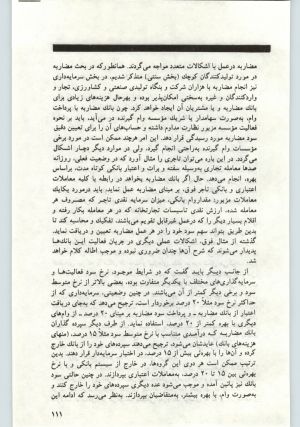 مضاربه درعمل با اشکالات متعدد مواجه می‌گردند. همانطورکه در بحث مضاربه
در مورد تولیدکنندگان کوچک (بخش سنتی) متذکر شدیم، در بخش سرمایه‌داری
نیز انجام مضاربه با هزاران شرکت و بنگاه تولیدی صنعتی و کشاورزی، تجار و
واردکنندگان و غیره بسختی امکان‌پذیر بوده و بهرحال هزینه‌های زیادی برای
بانک مضاربه و یا مشتریان آن ایجاد خواهد کرد. چون بانک مضاربه با پرداخت
وام، بصورت سهامدار یا شریک مؤسسه وام گیرنده در می‌آید، باید بر نحوه
فعالیت مؤسسه مزبور نظارت مداوم داشته و حساب‌های آن را برای تعیین دقیق
سود مضاربه مورد رسیدگی قرار دهد. این امر هرچند ممکن است در مورد برخی
مؤسسات وام گیرنده براحتی انجام گیرد، ولی در موارد دیگر دچار اشکال
می‌گردد. در این باره می‌توان تاجری را مثال آورد که در وضعیت فعلی، روزانه
صدها معامله تجاری بوسیله سفته و برات و اعتبار بانکی کوتاه مدت، براساس
بهره، انجام می‌دهد. حال اگر بانک مضاربه بخواهد در رابطه با کلیه معاملات
اعتباری و بانکی تاجر فوق، بر مبنای مضاربه عمل نماید، باید درمورد یکایک
معاملات مزبور، مقدار وام بانکی، میزان نقدی که تاجر برای هر
معامله شده، ارزش نقدی تاسیسات تجارتخانه که در هر معامله بکار رفته و
اقلام بسیار دیگر را که درعمل غیرقابل تقویم می‌باشند، تفکیک و محاسبه کند تا
بدین طریق بتواند سهم سود خود را در هر عمل مضاربه تعیین و دریافت نماید.
گذشته از مثال فوق، اشکالات عملی دیگری در جریان فعالیت این بانک‌ها
پدیدار می‌شوند که شرح آن‌ها چندان ضروری نبوده و موجب اطاله کلام خواهد
شد.
از جانب دیگر باید گفت که در شرایط موجود، نرخ سود فعالیت‌ها و
سرمایه‌گذاری‌های مختلف با یکدیگر متفاوت بوده، بعضی بالاتر از نرخ متوسط
سود و برخی دیگر کمتر از آن می‌باشند. در چنین وضعیتی، سرمایه‌داری که از
حداکثر نرخ سود مثلاً ۴۰ درصد برخوردار است، ترجیح می‌دهد که بجای دریافت
اعتبار از بانک مضاربه ـ و پرداخت سود مضاربه بر مبنای ۴۰ درصد ـ از وام‌های
دیگری با بهره کمتر از ۴۰ درصد، استفاده نماید. از طرف دیگر سپرده گذاران
بانک مضاربه که درآمدی متناسب با نرخ متوسط سود مثلاً ۱۵ درصد (منهای
هزینه‌های بانک) عایدشان می‌شود، ترجیح می‌دهند سپرده‌های خود را از بانک خارج
کرده و آن‌ها را با بهره‌ئی بیش از ۱۵ درصد، در اختیار سرمایه‌دار قرار دهند. بدین
ترتیب ممکن است هر دوی این گروه‌ها، در خارج از سیستم بانکی و با نرخ
بهره‌ئی بین ۱۵ تا ۴۰ درصد، به‌معاملات اعتباری بپردازند. در چنین حالتی سود
بانک نیز پائین آمده و موجب می‌شود عده دیگری سپرده‌های خود را خارج کنند و
بصورت وام، با بهره بیشتر، به‌متقاضیان بپردازند. بنظر می‌رسد که ادامه این
۱۱۱